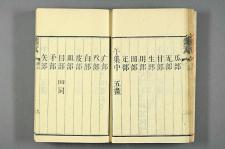 瓜部
瓦部
甘部
生部
用部
田部
疋部
午集中 五畫
疒部
癶部
白部
皮部
皿部
目部 四同
矛部
矢部